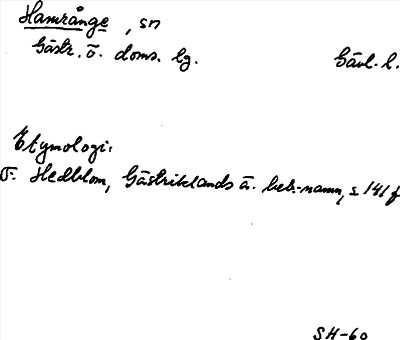 Hamrånge, sn
Gästr. ö. doms. lg. Gävl. l.
Etymologi:
F. Hedblom, Gästriklands ä. beb.-namn, s. 141 f
SH-60